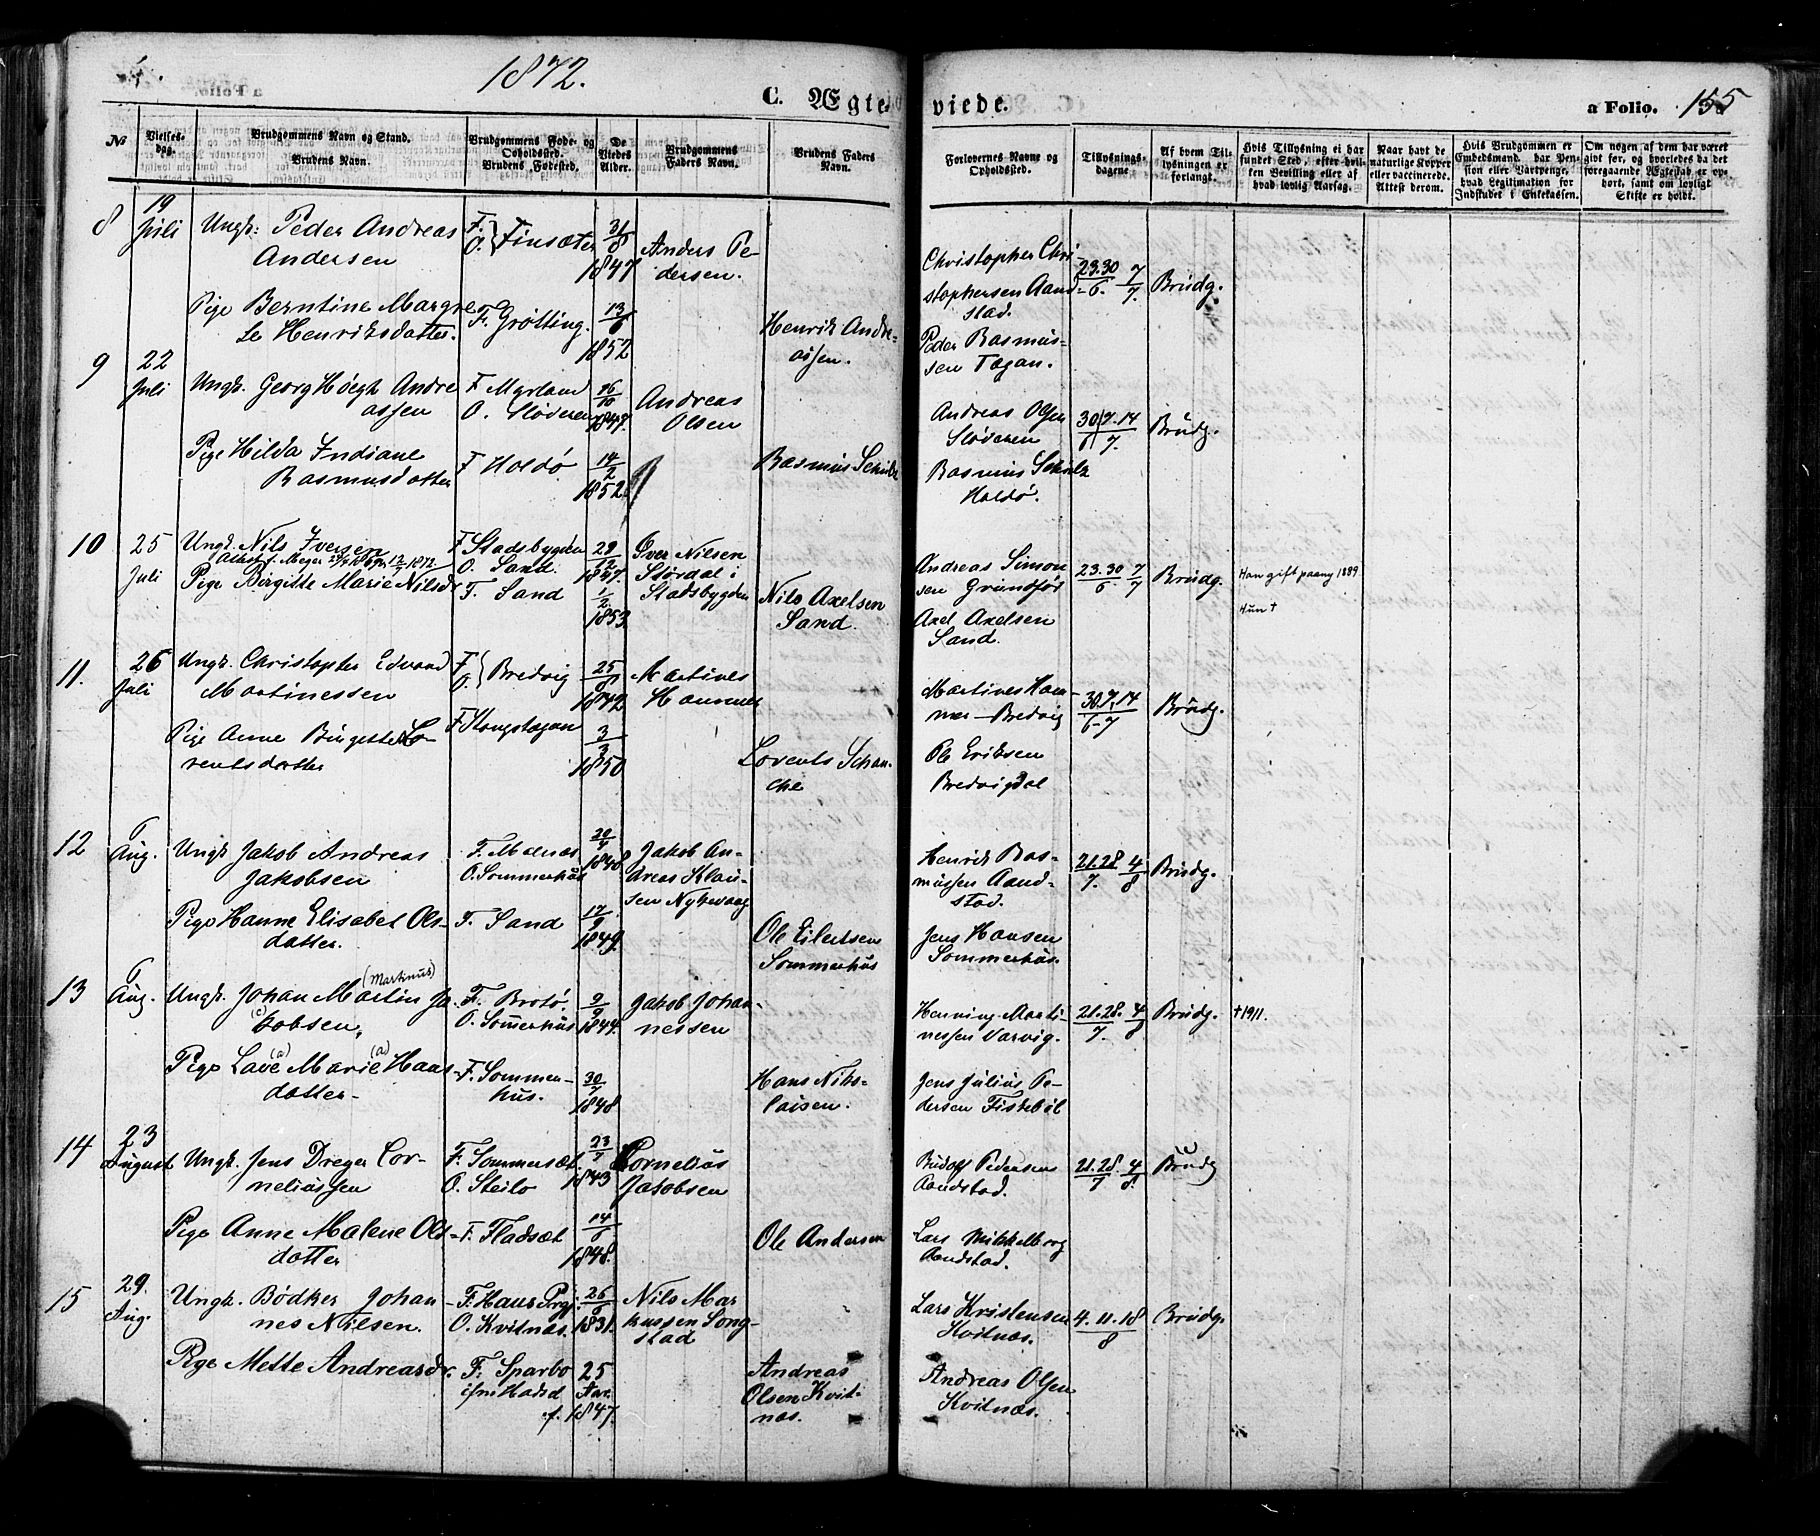 1872.
C. Ægteviede.
a Folio. 155
№
Vielses-dag.
Brudgommens Navn og Stand.
Brudens Navn.
Brudgommens Føde- og Opholdssted.
Brudens Fødested.
De Viedes Alder.
Brudgommens Faders Navn.
Brudens Faders Navn.
Forlovernes Navne og Opholdssted.
Tillysnings-dagene
Af hvem Tillysningen er forlangt.
Hvis Tillysning ei har fundet Sted, efter hvilken Bevilling eller af hvad lovlig Aarsag.
Naar havt de naturlige Kopper eller vaccinerede. Attest derom.
Hvis Brudgommen er Embedsmand, har Pension eller Vartpenge, hvad Legitimation for Indskudet i Enkekassen.
Om nogen af dem har været givt før, og hvorledes da det foregaaende Ægteskab er ophørt, samt om lovligt Skifte er holdt.
8 19 Juli Ungk: Peder Andreas Andersen F. O. } Finsæter 31/8 1847 Anders Pedersen. Christopher Christophersen Aandstad. 23.30/6. 7/7. Brudg.
Pige Berntine Margrete Henriksdatter. F. Grótting. 13/6 1852 Henrik Andreassen. Peder Rasmussen Tagan.
9 22 Juli Ungk. Georg Høegh Andreassen F Myrland O. Sløveren 16/10 1847. Andreas Olsen Andreas Olsen Sløveren 30/6 7.14/7. Brudg.
Pige Hilda Indiane Rasmusdatter F Holdö 14/2 1852. Rasmus Schulz Rasmus Schulz Holdö.
10 25 Juli Ungk. Nils Iversen F Stadsbygden O. Sand. 28/12 1847. Iver Nilsen Stórdal i Stadsbygden Andreas Simonsen Grundfór 23.30/6 7/7 Brudg. Han gift paany 1889
Pige Birgitte Marie Nilsdr. F. Sand 1/2 1853 Nils Axelsen Sand. Axel Axelsen Sand. Hun †
11. 26 Juli Ungk. Christopher Edvard Martinessen F. O. } Bredvig 25/6 1842 Martines Hammer Martines Hammer Bredvig 30/6 7.14/7 Brudg.
Pige Anne Birgette Lorentsdatter F. Kongstagan 3/3 1850 Lorents Schanche Ole Eriksen Bredvigdal
12 1 Aug. Ungk Jakob Andreas Jakobsen F. Melnæs O. Sommerhus 20/4 1848 Jakob Andreas Klausen Nykvaag Henrik Rasmussen Aandstad. 21.28/7. 4/8 Brudg.
Pige Hanne Elisabet Olsdatter. F. Sand 17/9 1849. Ole Eilertsen Sommerhus Jens Hansen Sommerhus.
13 1 Aug. Ungk. Johan Martin (Martinus) Jakobsen. (c) F. Brotó. O. Sommerhus 9/9 1844. Jakob Johannessen Henning Martinessen Varvig. 21.28./7. 4/8 Brudg. † 1911.
Pige Lave (a) Marie (a) Hansdatter F. Sommerhus. 30/7 1848 Hans Nikolaisen. Jens Julius Pedersen Fiskebøl
14 23 August Ungk. Jens Dreyer Corneliussen F. Sommersæt. O. Steilo 23/7 1843 Cornelius Jakobsen Rudolf Pedersen Aandstad. 21.28./7 4/8. Brudg
Pige Anne Malene Olsdatter F. Fladsæt 14/6 1848. Ole Andersen Lars Mikkelborg Aandstad.
15 29. Aug. Ungk. Bødker Johannes Nilsen. F. Haus Prgj. O. Kvitnæs. 26/6 1831. Nils Markussen Songstad Lars Kristensen Kvitnæs. 4.11.18/8 Brudg.
Pige Mette Andreasdr. F. Sparbo 25 Aar f. 1847. Andreas Olsen Kvitnæs. Andreas Olsen Kvitnæs.